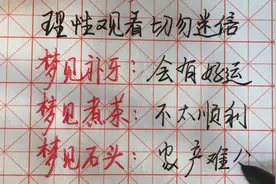 理性观看切勿迷信
梦见补牙：会有好运
梦见煮菜：不太顺利
梦见石头：家产难